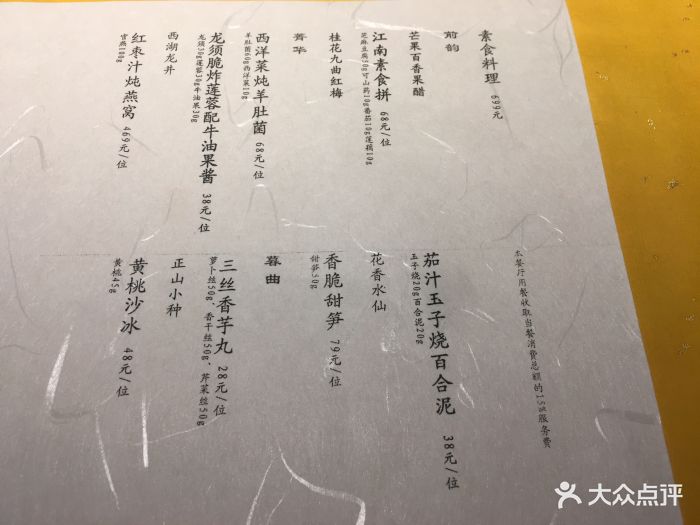 素食料理 699元
前韵
芒果百香果醋
江南素食拼 68元/位
芝麻豆腐50g可山药10g番茄10g莲藕10g
桂花九曲红梅
菁华
西洋菜炖羊肚菌 68元/位
羊肚菌60g西洋菜10g
龙须脆炸莲蓉配牛油果酱 38元/位
龙须30g莲蓉30g牛油果30g
西湖龙井
红枣汁炖燕窝 469元/位
官燕100g
本餐厅用餐收取当餐消费总额的15%服务费
茄汁玉子烧百合泥 38元/位
玉子烧20g百合泥20g
花香水仙
香脆甜笋 79元/位
甜笋50g
暮曲
三丝香芋丸 28元/位
萝卜丝50g、香干丝50g、芹菜丝50g
正山小种
黄桃沙冰 48元/位
黄桃45g
大众点评